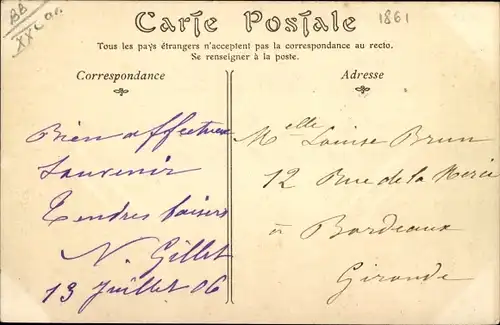 BB
XXC ar.
1861
Carte Postale
Tous les pays étrangers n'acceptent pas la correspondance au recto.
Se renseigner à la poste.
Correspondance
Adresse
Bien affectueux
Souvenir
Tendres baisers
N. Gillet
13 Juillet 06
Melle Louise Brun
12 Rue de la Merci
à Bordeaux
Gironde